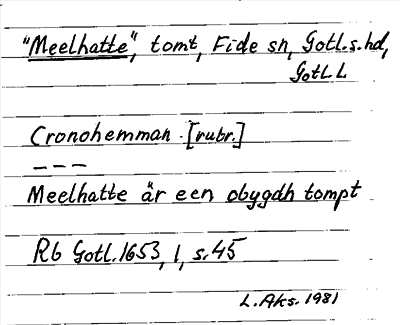 "Meelhatte", tomt, Fide sn, Gotl.s.hd,
Gotl. L
Cronohemman [rubr.]
---
Meelhatte är een obygdh tompt
Rb Gotl. 1653, 1, s. 45
L. Aks. 1981